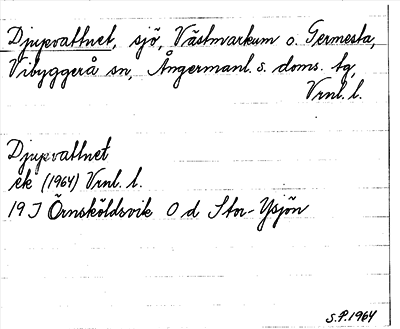 Djupvattnet, sjö, Västmarkum o. Germesta,
Vibyggerå sn, Ångermanl. s. doms. tg,
Vrnl. l.
Djupvattnet
ek (1964) Vrnl. l.
19 J Örnsköldsvik O d Stor-Ysjön
S.P. 1964